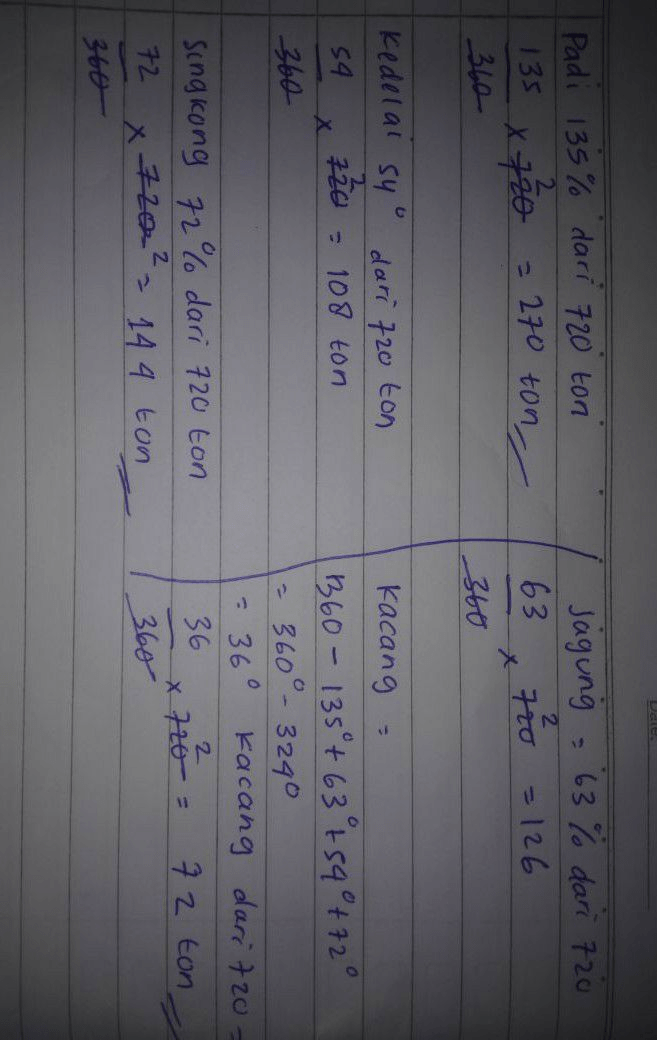 Date:
Padi 135% dari 720 ton
135/360 x 720 2 = 270 ton
Kedelai 54° dari 720 ton
54/360 x 720 2 = 108 ton
Singkong 72% dari 720 ton
72/360 x 720 2 = 144 ton
Jagung = 63% dari 720
63/360 x 720 2 = 126
Kacang =
360 - 135° + 63° + 54° + 72°
= 360° - 324°
= 36° kacang dari 720 =
36/360 x 720 2 = 72 ton